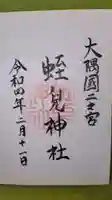 大隅國二之宮
蛭児神社
令和四年二月十一日